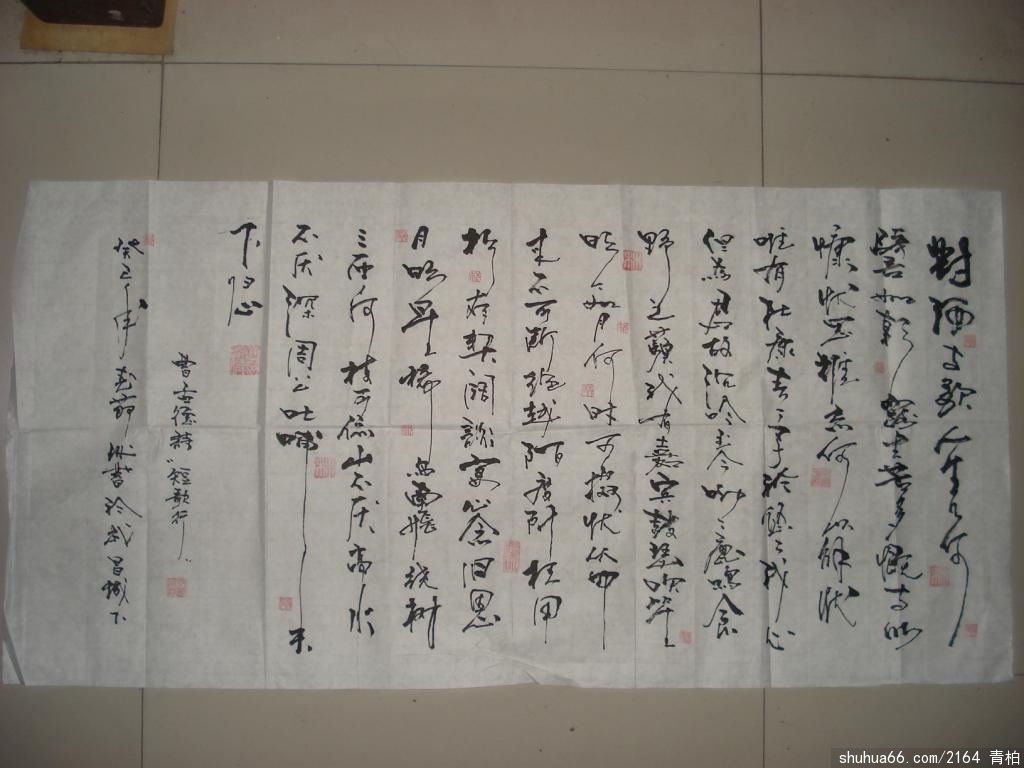 對酒当歌人生几何
譬如朝露去日苦多慨当以
慷忧思難忘何以解忧
唯有杜康青青子衿悠悠我心
但為君故沉吟至今呦呦鹿鳴食
野之蘋我有嘉宾鼓瑟吹笙
明明如月何时可掇忧从中
来不可断绝越陌度阡枉用
相存契阔談宴心念旧恩
月明星稀乌鹊南飛绕树
三匝何枝可依山不厌高水
不厌深周公吐哺天
下归心
曹孟德詩短歌行
癸巳年 書於武昌城下
shuhua66.com/2164 青柏